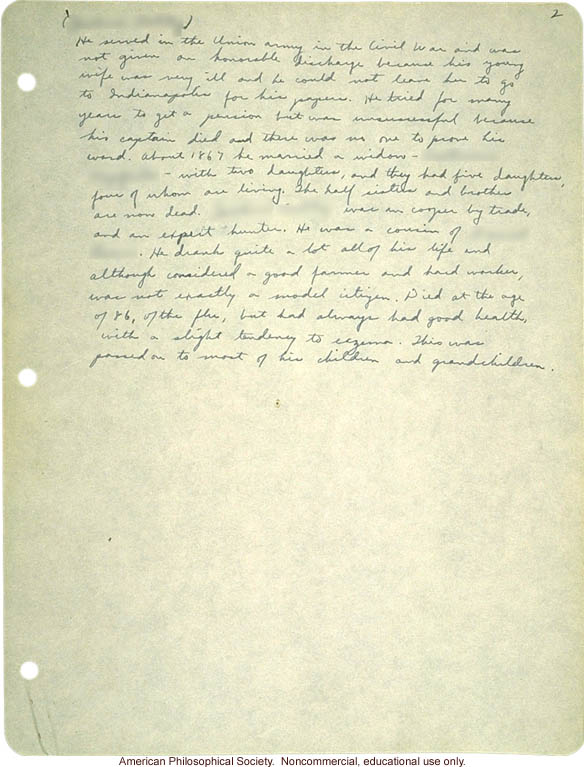 ( ) 2
He served in the Union army in the Civil War and was
not given an honorable discharge because his young
wife was very ill and he could not leave her to go
to Indianapolis for his papers. He tried for many
years to get a pension but was unsuccessful because
his captain died and there was no one to prove his
word. About 1867 he married a widow -
- with two daughters, and they had five daughters,
four of whom are living. The half sisters and brother
are now dead. was an cooper by trade,
and an expert hunter. He was a cousin of
. He drank quite a lot all of his life and
although considered a good farmer and hard worker,
was not exactly a model citizen. Died at the age
of 86, of the flu, but had always had good health,
with a slight tendency to eczema. This was
passed on to most of his children and grandchildren.
American Philosophical Society. Noncommercial, educational use only.